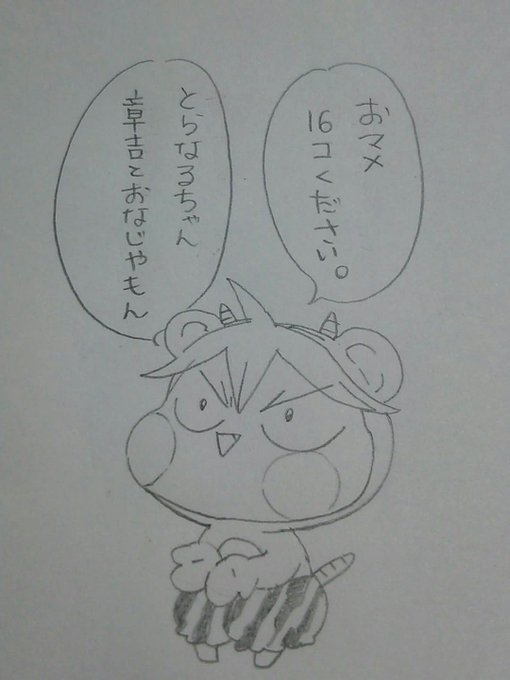 おマメ
16コください。
とらなるちゃん
章吉とおなじやもん